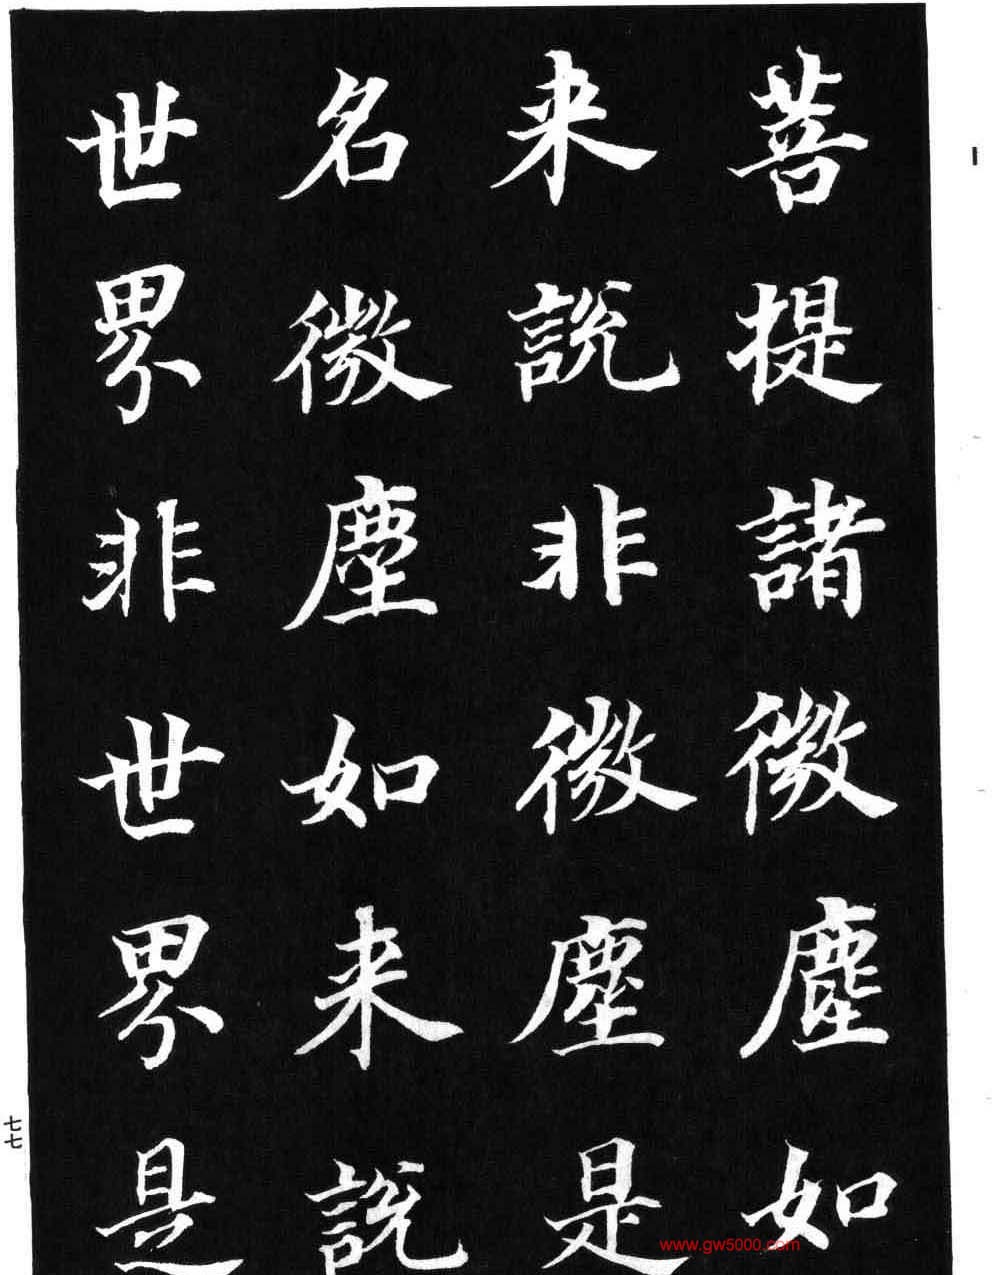 菩提諸微塵如
来說非微塵是
名微塵如来說
世界非世界是
七七
www.gw5000.com